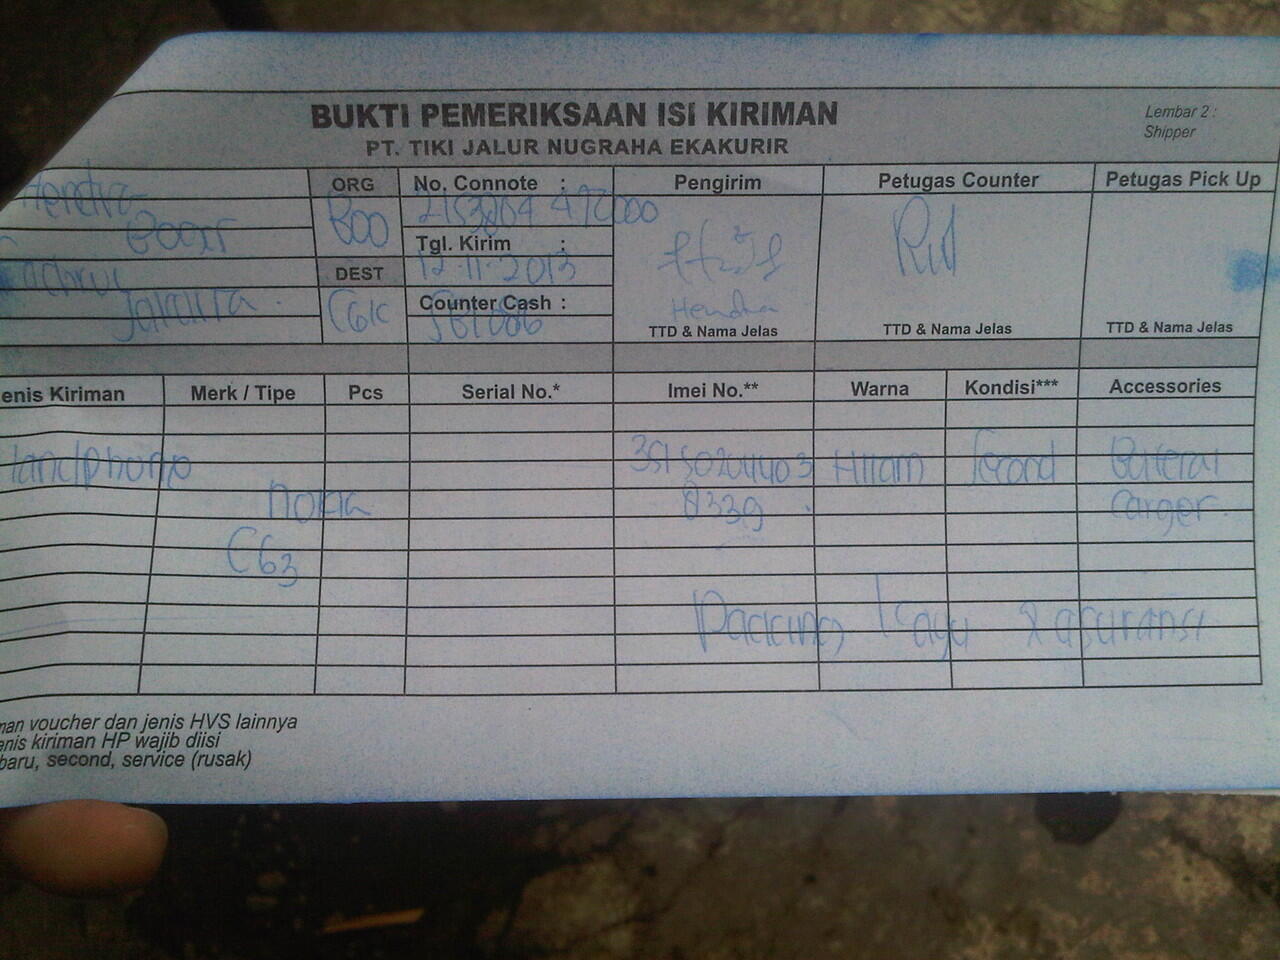 BUKTI PEMERIKSAAN ISI KIRIMAN
PT. TIKI JALUR NUGRAHA EKAKURIR
Lembar 2 :
Shipper
Hendra
ORG
BOO
DEST
CGK
Jakarta
No. Connote :
Tgl. Kirim :
12-11-2013
Counter Cash :
Pengirim
Hendra
TTD & Nama Jelas
Petugas Counter
TTD & Nama Jelas
Petugas Pick Up
TTD & Nama Jelas
enis Kiriman Merk / Tipe Pcs Serial No.* Imei No.** Warna Kondisi*** Accessories
Handphone Hitam Second Baterai
Nokia 0339 Carger.
C63
Packing kayu & asuransi
man voucher dan jenis HVS lainnya
enis kiriman HP wajib diisi
baru, second, service (rusak)